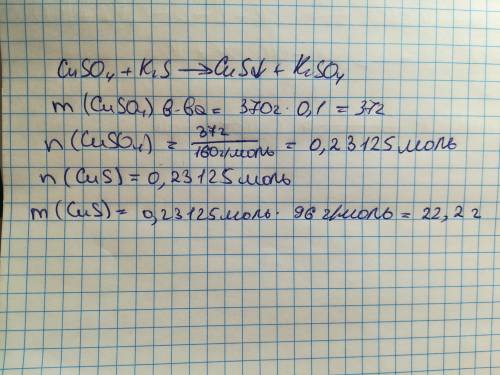 CuSO₄ + K₂S → CuS↓ + K₂SO₄
m (CuSO₄) в-ва = 370г · 0,1 = 37г
n (CuSO₄) = 37г / 160г/моль = 0,23125 моль
n (CuS) = 0,23125 моль
m (CuS) = 0,23125 моль · 96 г/моль = 22,2 г